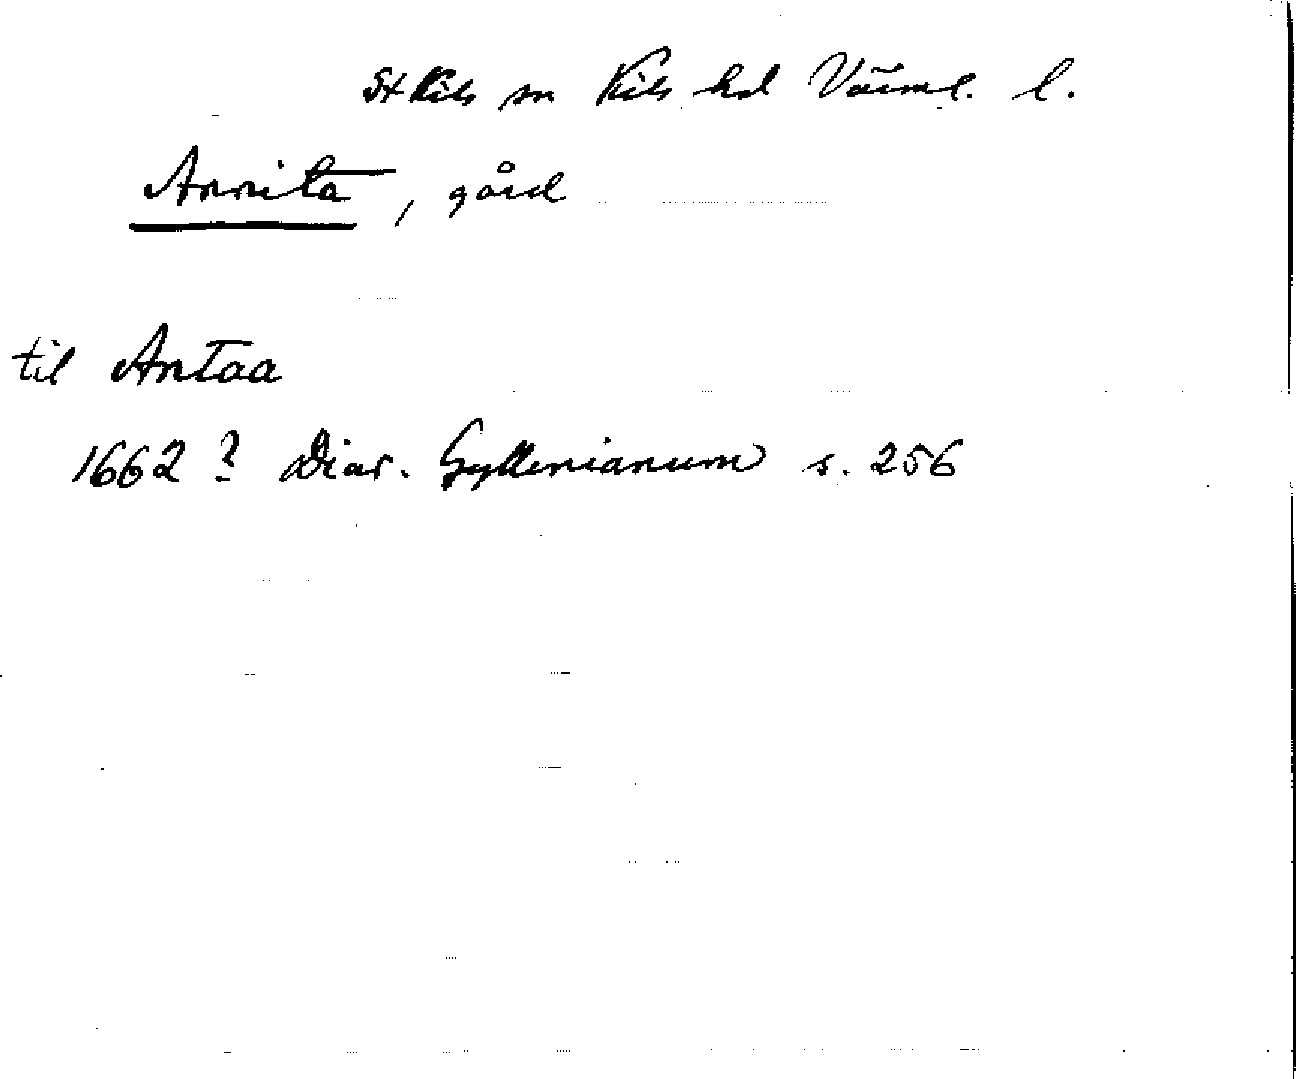 St Kils sn Kils hd Värml. l.
Annita, gård
til Antaa
1662? Diar. Gyllenianum s. 256